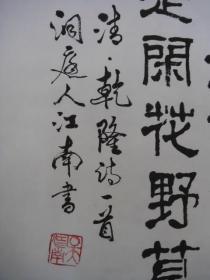 閑花野草
清·乾隆詩一首
洞庭人江南書